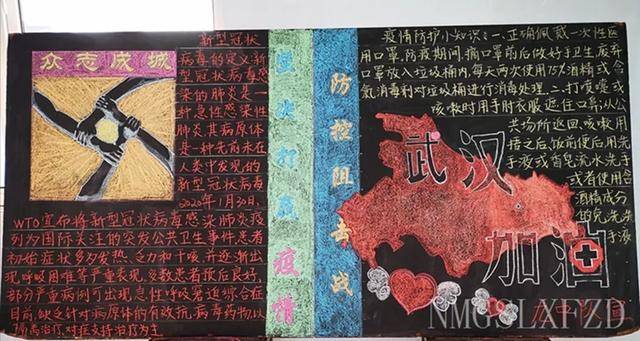 众志成城
新型冠状
病毒的定义新
型冠状病毒感
染的肺炎是一
种急性感染性
肺炎其病原体
是一种先前未在
人类中发现的
新型冠状病毒
2020年1月30日,
WTO宣布将新型冠状病毒感染肺炎疫
列为国际关注的突发公共卫生事件患者
初始症状多为发热、乏力和干咳并逐渐出
现呼吸困难等严重表现,多数患者预后良好
部分严重病例可出现急性呼吸窘迫综合症
目前,缺乏针对病原体的有效抗病毒药物,以
隔离治疗,对症支持治疗为主
坚决打赢疫情
防控阻击战
疫情防护小知识:一、正确佩戴一次性医
用口罩,防疫期间,摘口罩前后做好手卫生废弃
口罩放入垃圾桶内,每天两次使用75%酒精或含
氯消毒剂对垃圾桶进行消毒处理。二、打喷嚏或
咳嗽时用手肘衣服遮住口鼻,从公
共场所返回、咳嗽用
捂之后、饭前便后用洗
手液或香皂流水洗手
或者使用含
酒精成分
的免洗洗
手液
武汉
加油
NMGSLXFZD